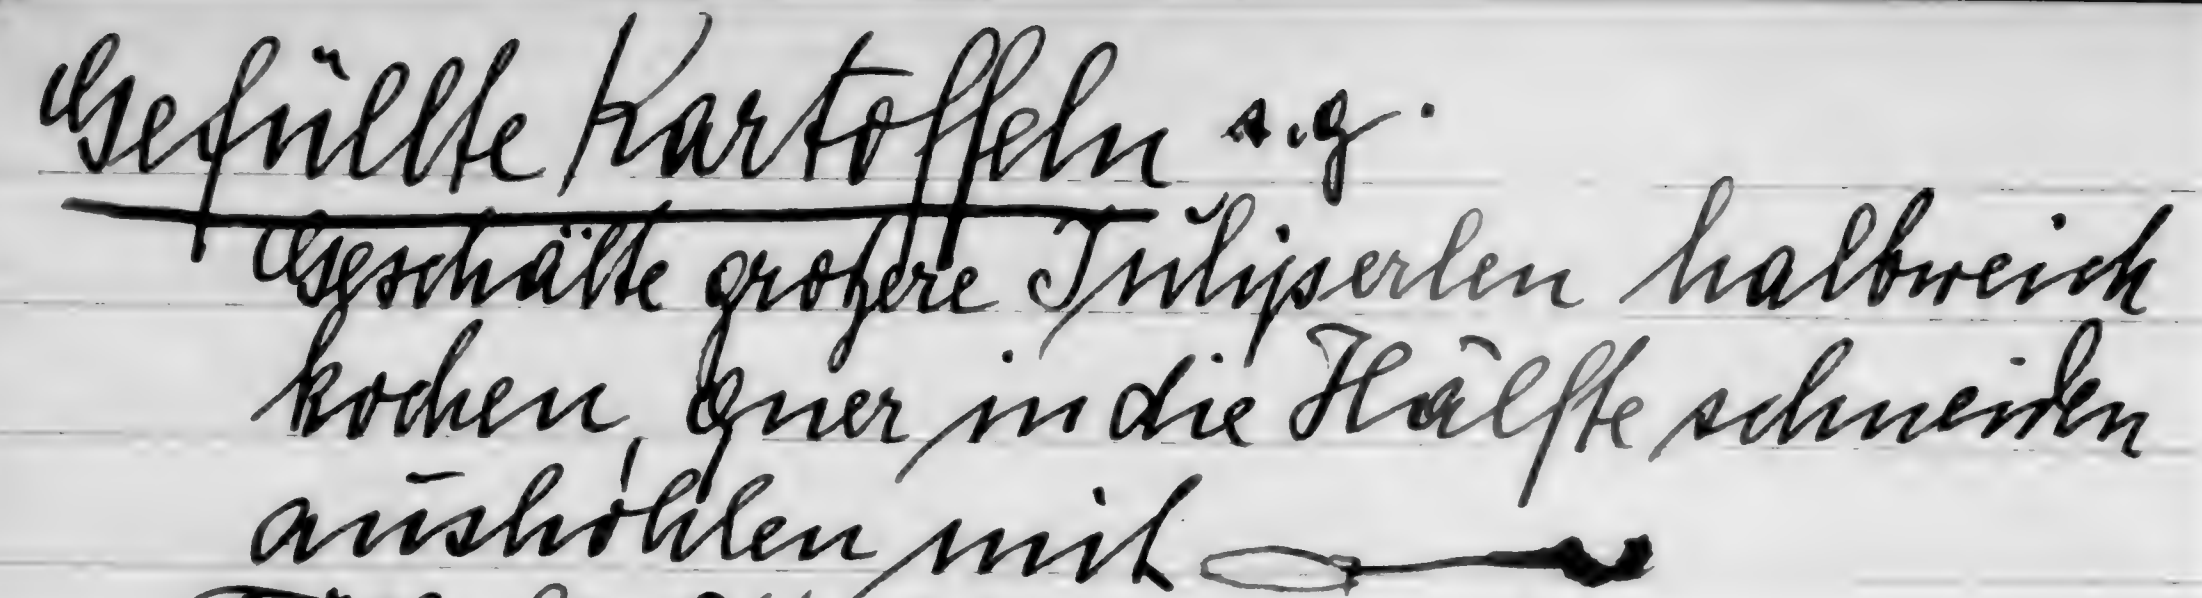 Gefüllte Kartoffeln s.g.
Geschälte große​re Juliperlen halbweich
kochen, quer in die Hälfte schneiden
aushöhlen mit